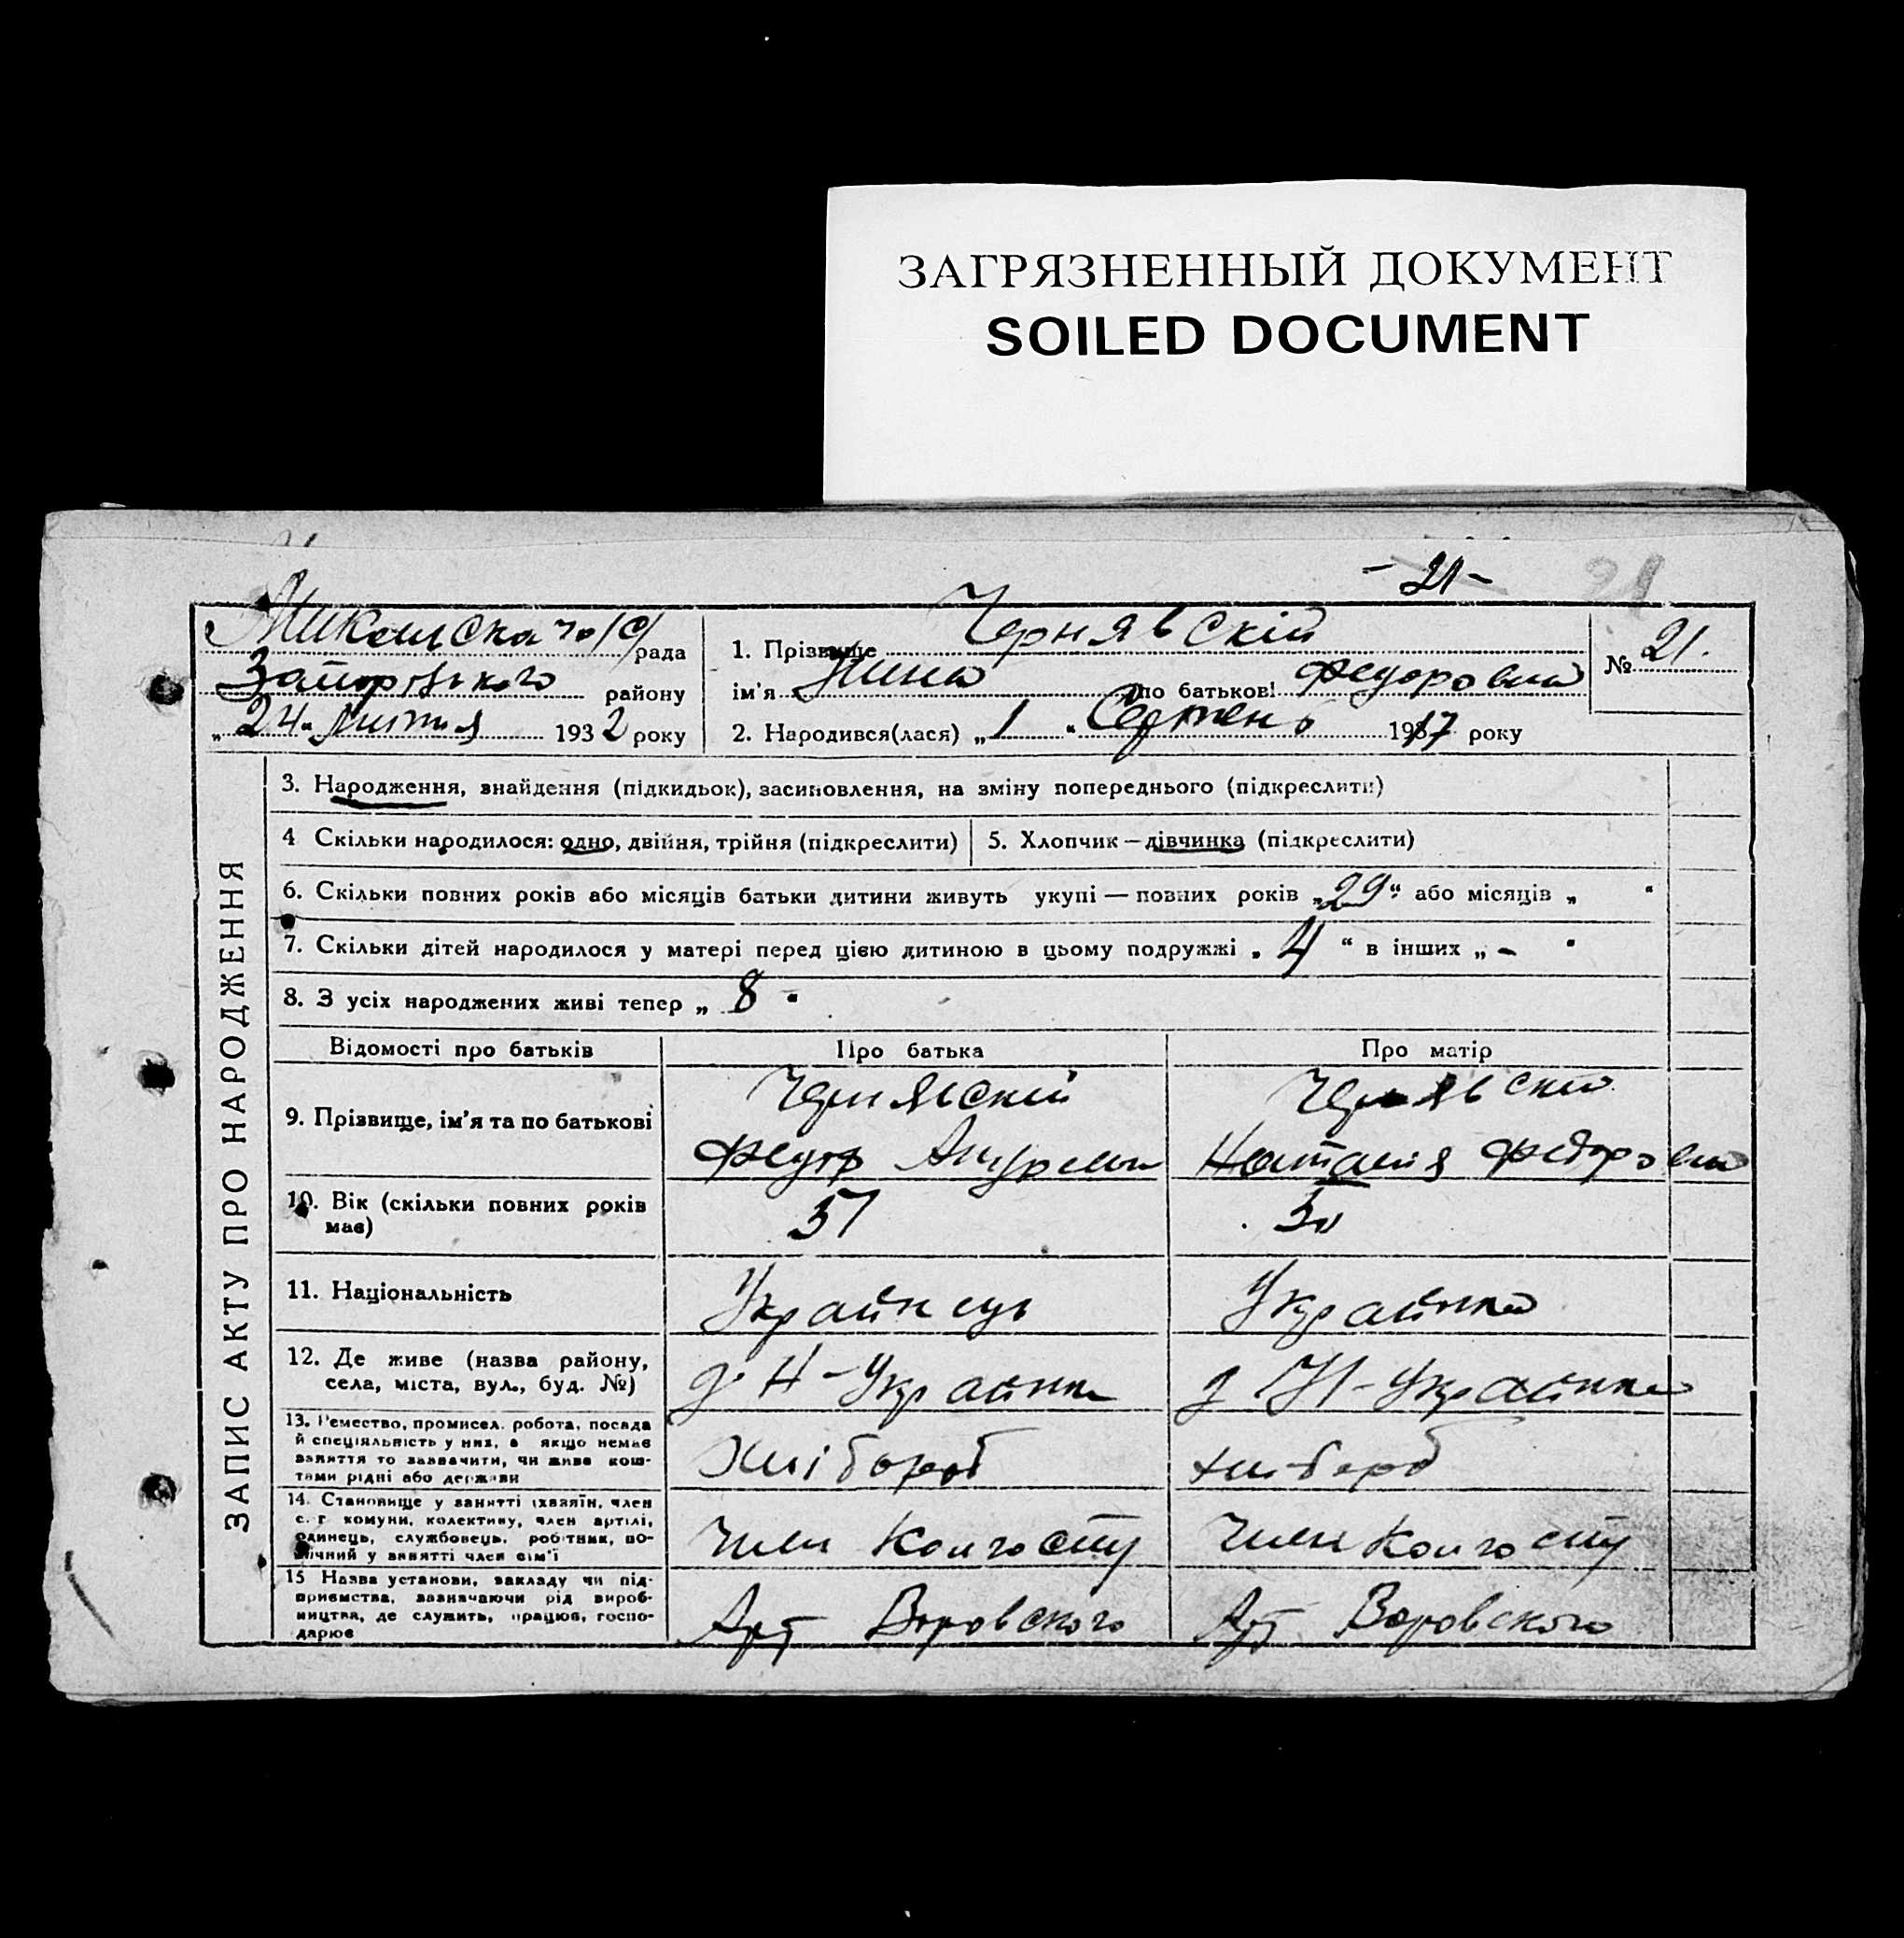 ЗАГРЯЗНЕННЫЙ ДОКУМЕНТ
SOILED DOCUMENT
- 21 -
21
рада
району
„24“ 1932 року
1. Прізвище Чернявскій
ім'я Нина по батькові Федоровна
2. Народився(лася) „1“ 1917 року
№ 21.
ЗАПИС АКТУ ПРО НАРОДЖЕННЯ
3. Народження, знайдення (підкидьок), засиновлення, на зміну попереднього (підкреслити)
4 Скільки народилося: одно, двійня, трійня (підкреслити)
5. Хлопчик — дівчинка (підкреслити)
6. Скільки повних років або місяців батьки дитини живуть укупі — повних років „29“ або місяців „ “
7. Скільки дітей народилося у матері перед цією дитиною в цьому подружжі „4“ в інших „-“
8. З усіх народжених живі тепер „8“
Відомості про батьків
Про батька
Про матір
9. Прізвище, ім'я та по батькові
Чернявскій
Федор
Наталия Федоровна
10. Вік (скільки повних років
має)
11. Національність
Украйнець
Украйнка
12. Де живе (назва району,
села, міста, вул., буд. №)
Н-Украйнка
Н-Украйнка
13. Ремество, промисел. робота, посада
й спеціяльність у них, а якщо немає
заняття то зазначити, чи живе кош-
тами рідні або держави
Хлібороб
Хлібороб
14. Становище у занятті (хазяїн, член
с. г. комуни, колективу, член артілі,
одинець, службовець, робітник, по-
мічний у занятті член сім'ї
Член Колгоспу
Член Колгоспу
15 Назва установи, закладу чи під-
приємства, зазначаючи рід вироб-
ництва, де служить, працює, госпо-
дарює
Арт Воровського
Арт Воровського